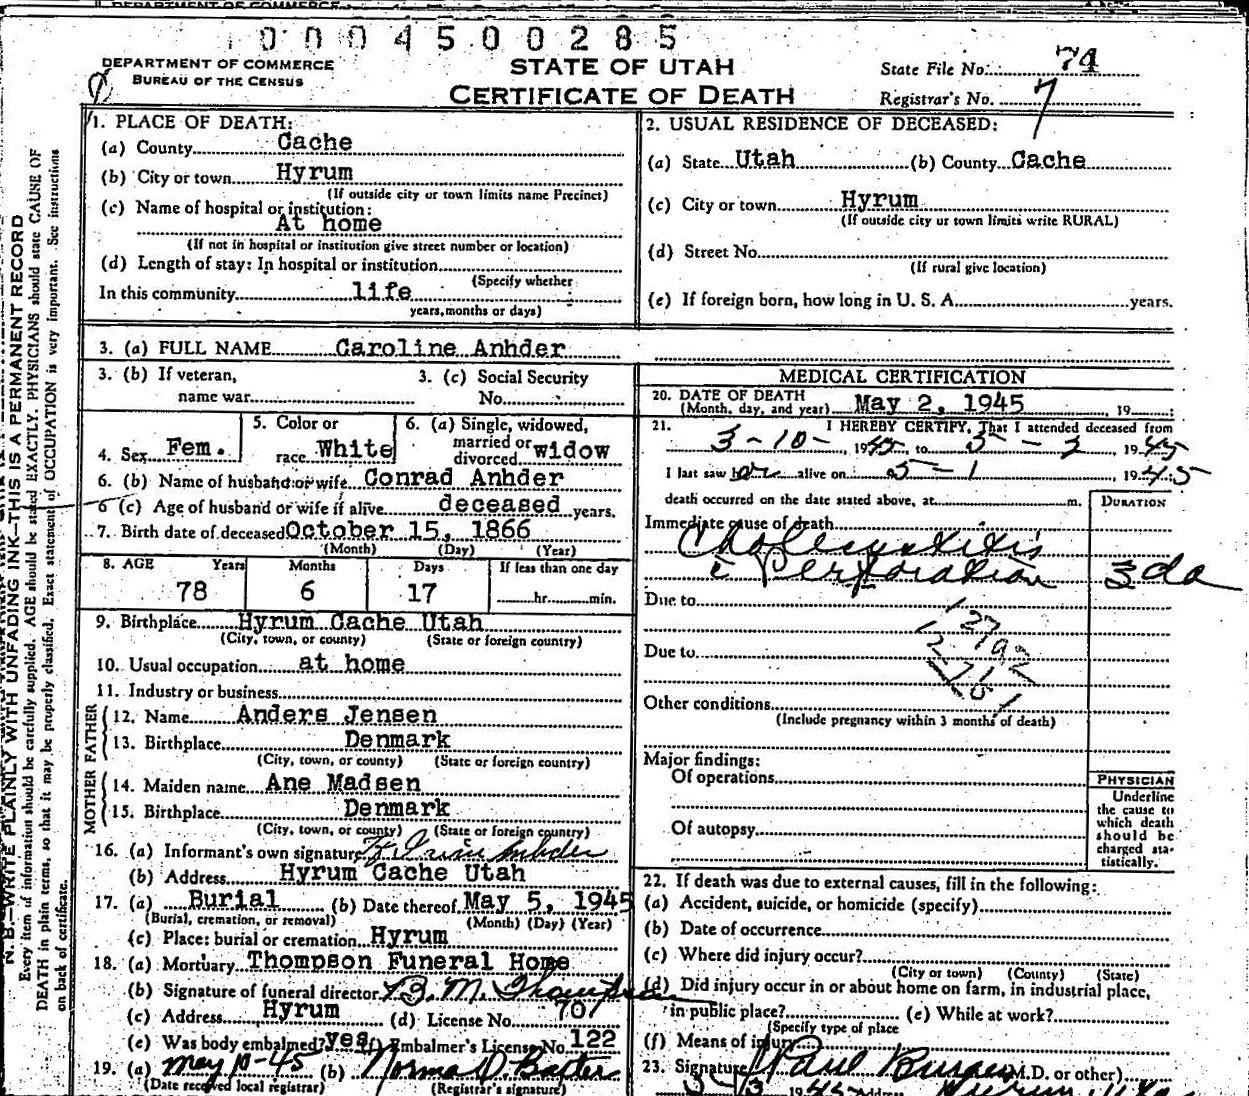 DEPARTMENT OF COMMERCE
0004500285
DEPARTMENT OF COMMERCE
BUREAU OF THE CENSUS
STATE OF UTAH
CERTIFICATE OF DEATH
State File No. 74
Registrar's No. 7
N. B.—WRITE PLAINLY WITH UNFADING INK—THIS IS A PERMANENT RECORD
Every item of information should be carefully supplied. AGE should be stated EXACTLY. PHYSICIANS should state CAUSE OF
DEATH in plain terms, so that it may be properly classified. Exact statement of OCCUPATION is very important. See instructions
on back of certificate.
1. PLACE OF DEATH:
(a) County Cache
(b) City or town Hyrum
(If outside city or town limits name Precinct)
(c) Name of hospital or institution:
At home
(If not in hospital or institution give street number or location)
(d) Length of stay: In hospital or institution
(Specify whether
In this community life
years, months or days)
2. USUAL RESIDENCE OF DECEASED:
(a) State Utah (b) County Cache
(c) City or town Hyrum
(If outside city or town limits write RURAL)
(d) Street No.
(If rural give location)
(e) If foreign born, how long in U. S. A. years.
3. (a) FULL NAME Caroline Anhder
3. (b) If veteran,
name war
3. (c) Social Security
No.
4. Sex Fem.
5. Color or
race White
6. (a) Single, widowed,
married or
divorced widow
6. (b) Name of husband or wife Conrad Anhder
6 (c) Age of husband or wife if alive deceased years.
7. Birth date of deceased October 15, 1866
(Month) (Day) (Year)
8. AGE Years Months Days If less than one day
78 6 17 hr. min.
9. Birthplace Hyrum Cache Utah
(City, town, or county) (State or foreign country)
10. Usual occupation at home
11. Industry or business
FATHER
12. Name Anders Jensen
13. Birthplace Denmark
(City, town, or county) (State or foreign country)
MOTHER
14. Maiden name Ane Madsen
15. Birthplace Denmark
(City, town, or county) (State or foreign country)
16. (a) Informant's own signature Anhder
(b) Address Hyrum Cache Utah
17. (a) Burial (b) Date thereof May 5, 1945
(Burial, cremation, or removal) (Month) (Day) (Year)
(c) Place: burial or cremation Hyrum
18. (a) Mortuary Thompson Funeral Home
(b) Signature of funeral director B. M. Thompson
(c) Address Hyrum (d) License No. 707
(e) Was body embalmed? yes (f) Embalmer's License No. 122
19. (a) May 10-45 (b) Norma D. Baxter
(Date received local registrar) (Registrar's signature)
MEDICAL CERTIFICATION
20. DATE OF DEATH
(Month, day, and year) May 2, 1945, 19
21. I HEREBY CERTIFY, That I attended deceased from
3-10-, 1945, to 5-2, 1945
I last saw her alive on 5-1 1945
death occurred on the date stated above, at m.
DURATION
Immediate cause of death
Cholecystitis
c Perforation 3 da
Due to
127
Due to
Other conditions
(Include pregnancy within 3 months of death)
Major findings:
Of operations
Of autopsy
PHYSICIAN
Underline
the cause to
which death
should be
charged sta-
tistically.
22. If death was due to external causes, fill in the following:
(a) Accident, suicide, or homicide (specify)
(b) Date of occurrence
(c) Where did injury occur?
(City or town) (County) (State)
(d) Did injury occur in or about home on farm, in industrial place,
in public place? (e) While at work?
(Specify type of place
(f) Means of injury
23. Signature Paul (M.D. or other)
5-3 1945 Address Hyrum Utah